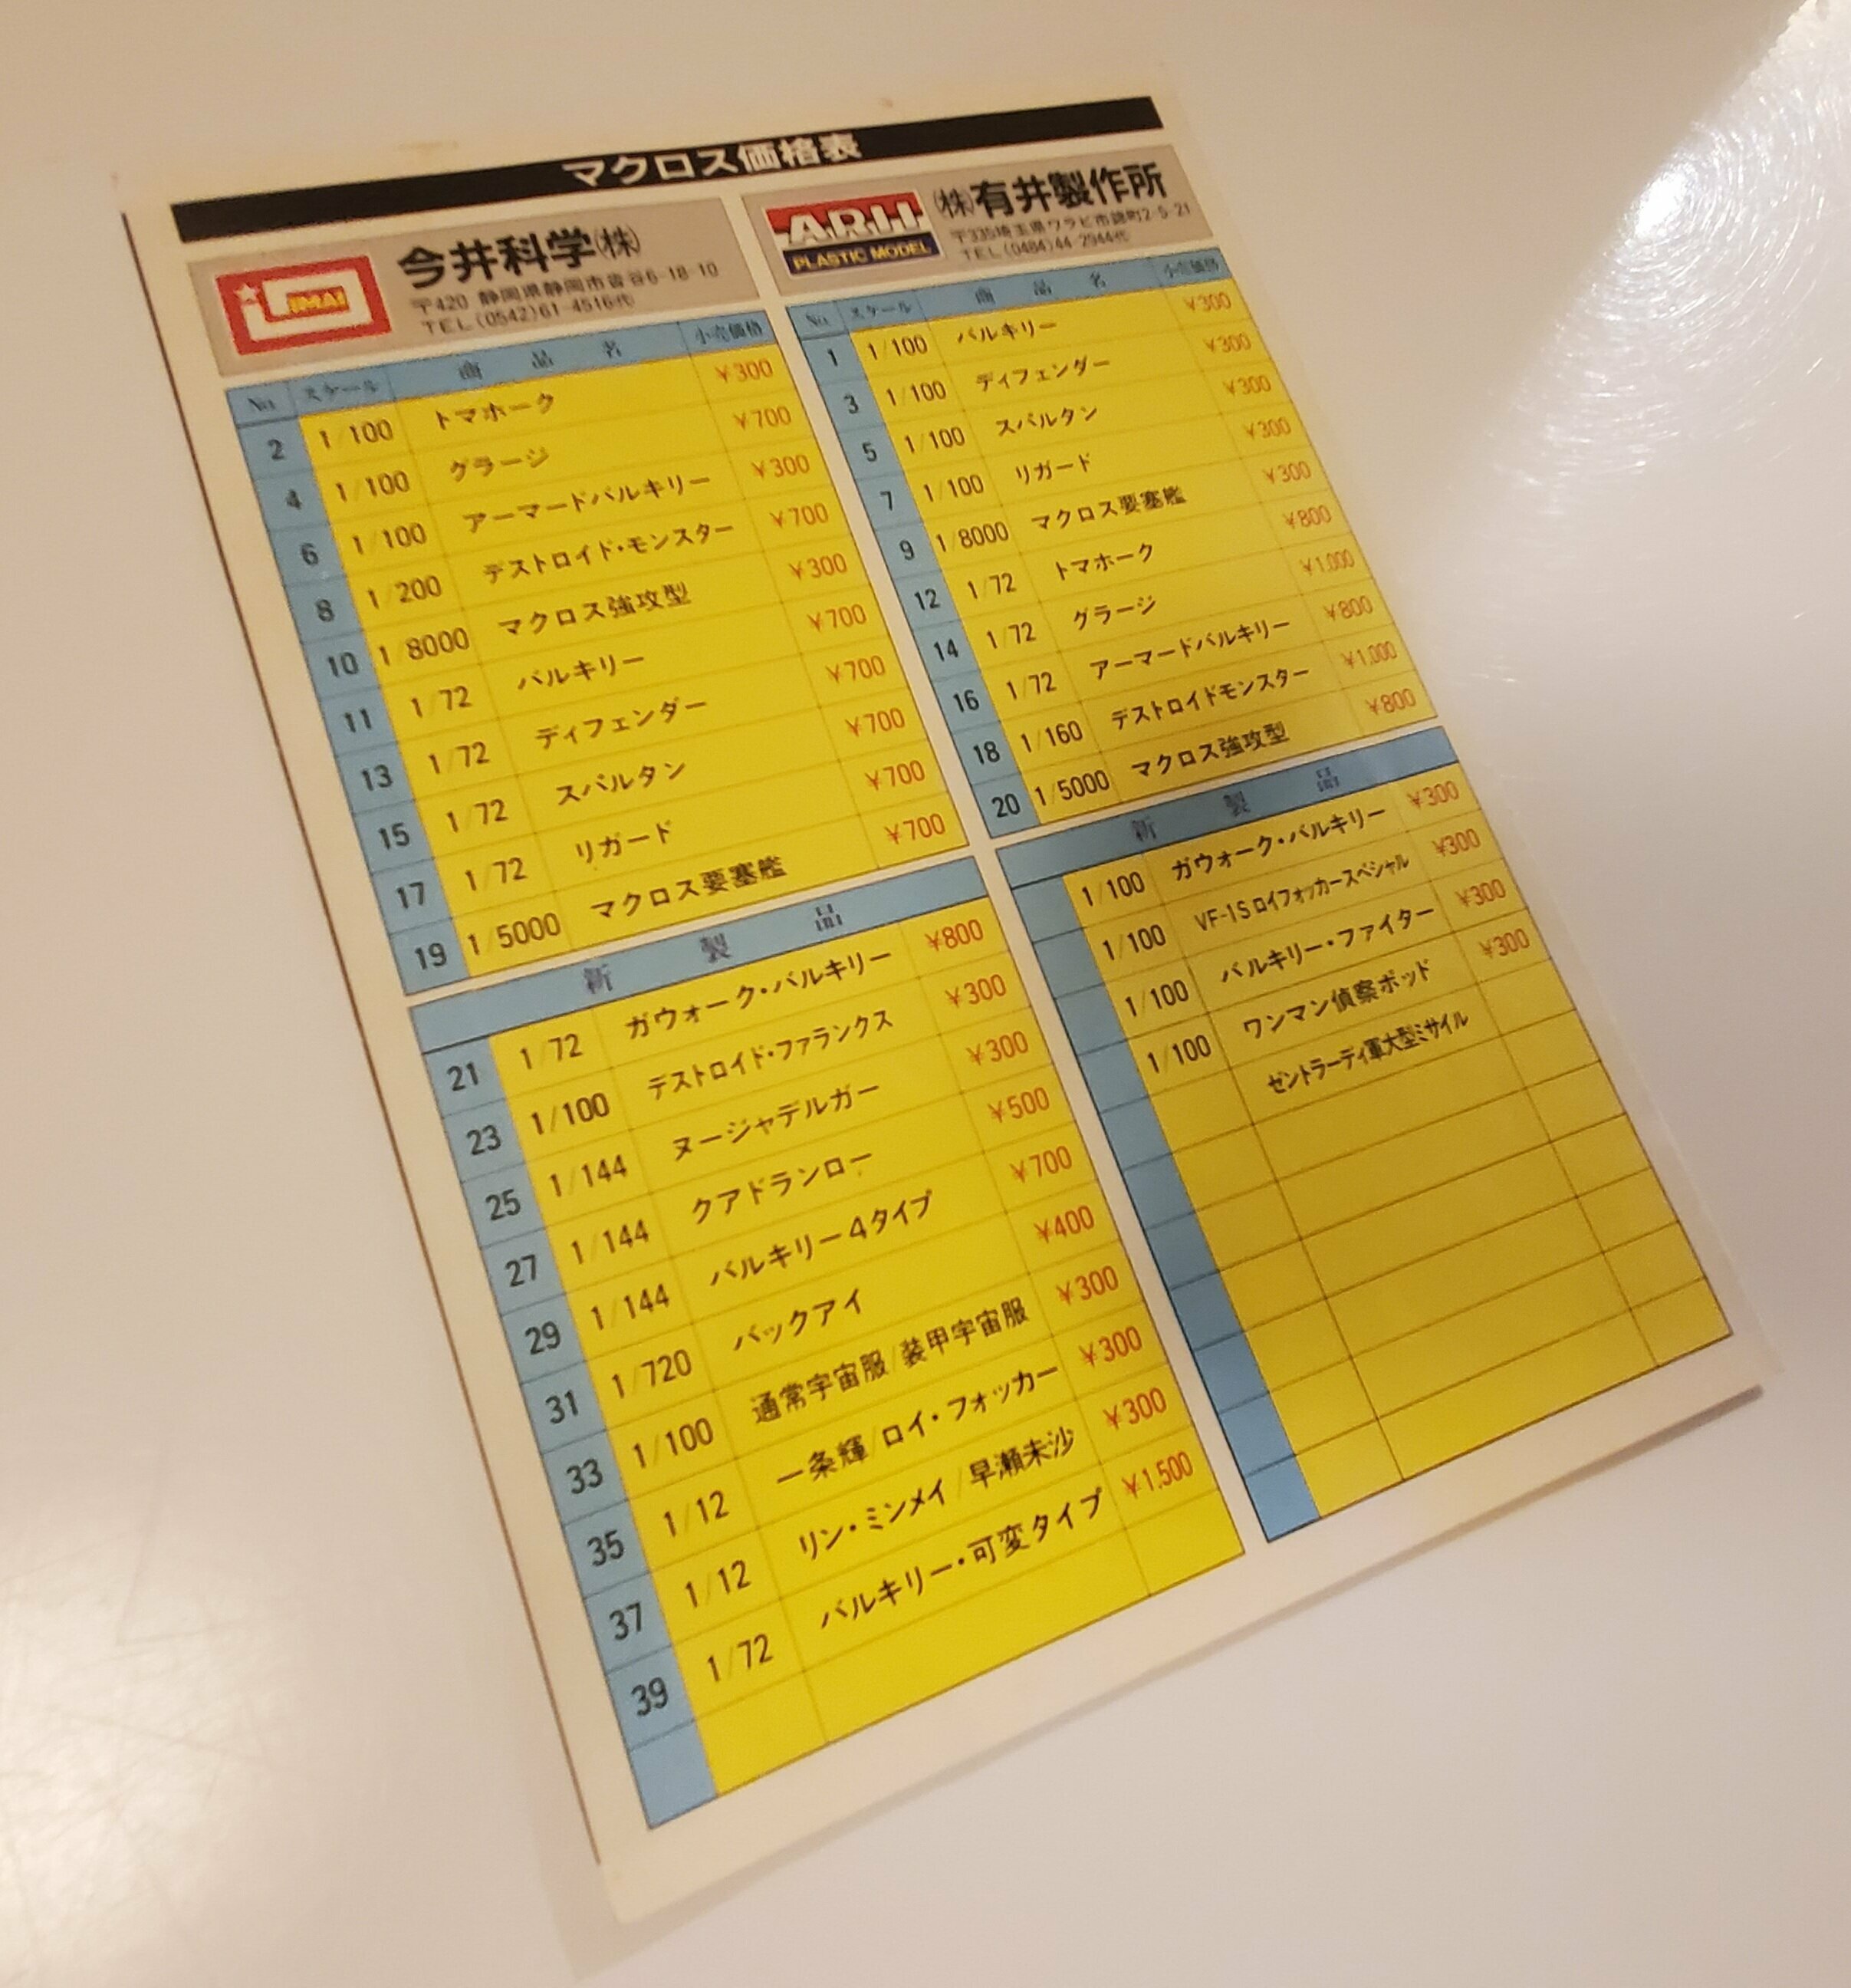 マクロス価格表
IMAI
今井科学㈱
〒420 静岡県静岡市沓谷6-18-10
TEL(0542)61-4516代
No. スケール 商品名 小売価格
2 1/100 トマホーク ¥300
4 1/100 グラージ ¥700
6 1/100 アーマードバルキリー ¥300
8 1/200 デストロイド・モンスター ¥700
10 1/8000 マクロス強攻型 ¥300
11 1/72 バルキリー ¥700
13 1/72 ディフェンダー ¥700
15 1/72 スパルタン ¥700
17 1/72 リガード ¥700
19 1/5000 マクロス要塞艦 ¥700
新製品
21 1/72 ガウォーク・バルキリー ¥800
23 1/100 デストロイド・ファランクス ¥300
25 1/144 ヌージャデルガー ¥300
27 1/144 クアドランロー ¥500
29 1/144 バルキリー4タイプ ¥700
31 1/720 バックアイ ¥400
33 1/100 通常宇宙服/装甲宇宙服 ¥300
35 1/12 一条輝/ロイ・フォッカー ¥300
37 1/12 リン・ミンメイ/早瀬未沙 ¥300
39 1/72 バルキリー・可変タイプ ¥1,500
ARII
PLASTIC MODEL
㈱有井製作所
〒335埼玉県ワラビ市錦町2-5-21
TEL(0484)44-2944代
No. スケール 商品名 小売価格
1 1/100 バルキリー ¥300
3 1/100 ディフェンダー ¥300
5 1/100 スパルタン ¥300
7 1/100 リガード ¥300
9 1/8000 マクロス要塞艦 ¥300
12 1/72 トマホーク ¥800
14 1/72 グラージ ¥1,000
16 1/72 アーマードバルキリー ¥800
18 1/160 デストロイドモンスター ¥1,000
20 1/5000 マクロス強攻型 ¥800
新製品
1/100 ガウォーク・バルキリー ¥300
1/100 VF-1Sロイフォッカースペシャル ¥300
1/100 バルキリー・ファイター ¥300
1/100 ワンマン偵察ポッド ¥300
ゼントラーディ軍大型ミサイル